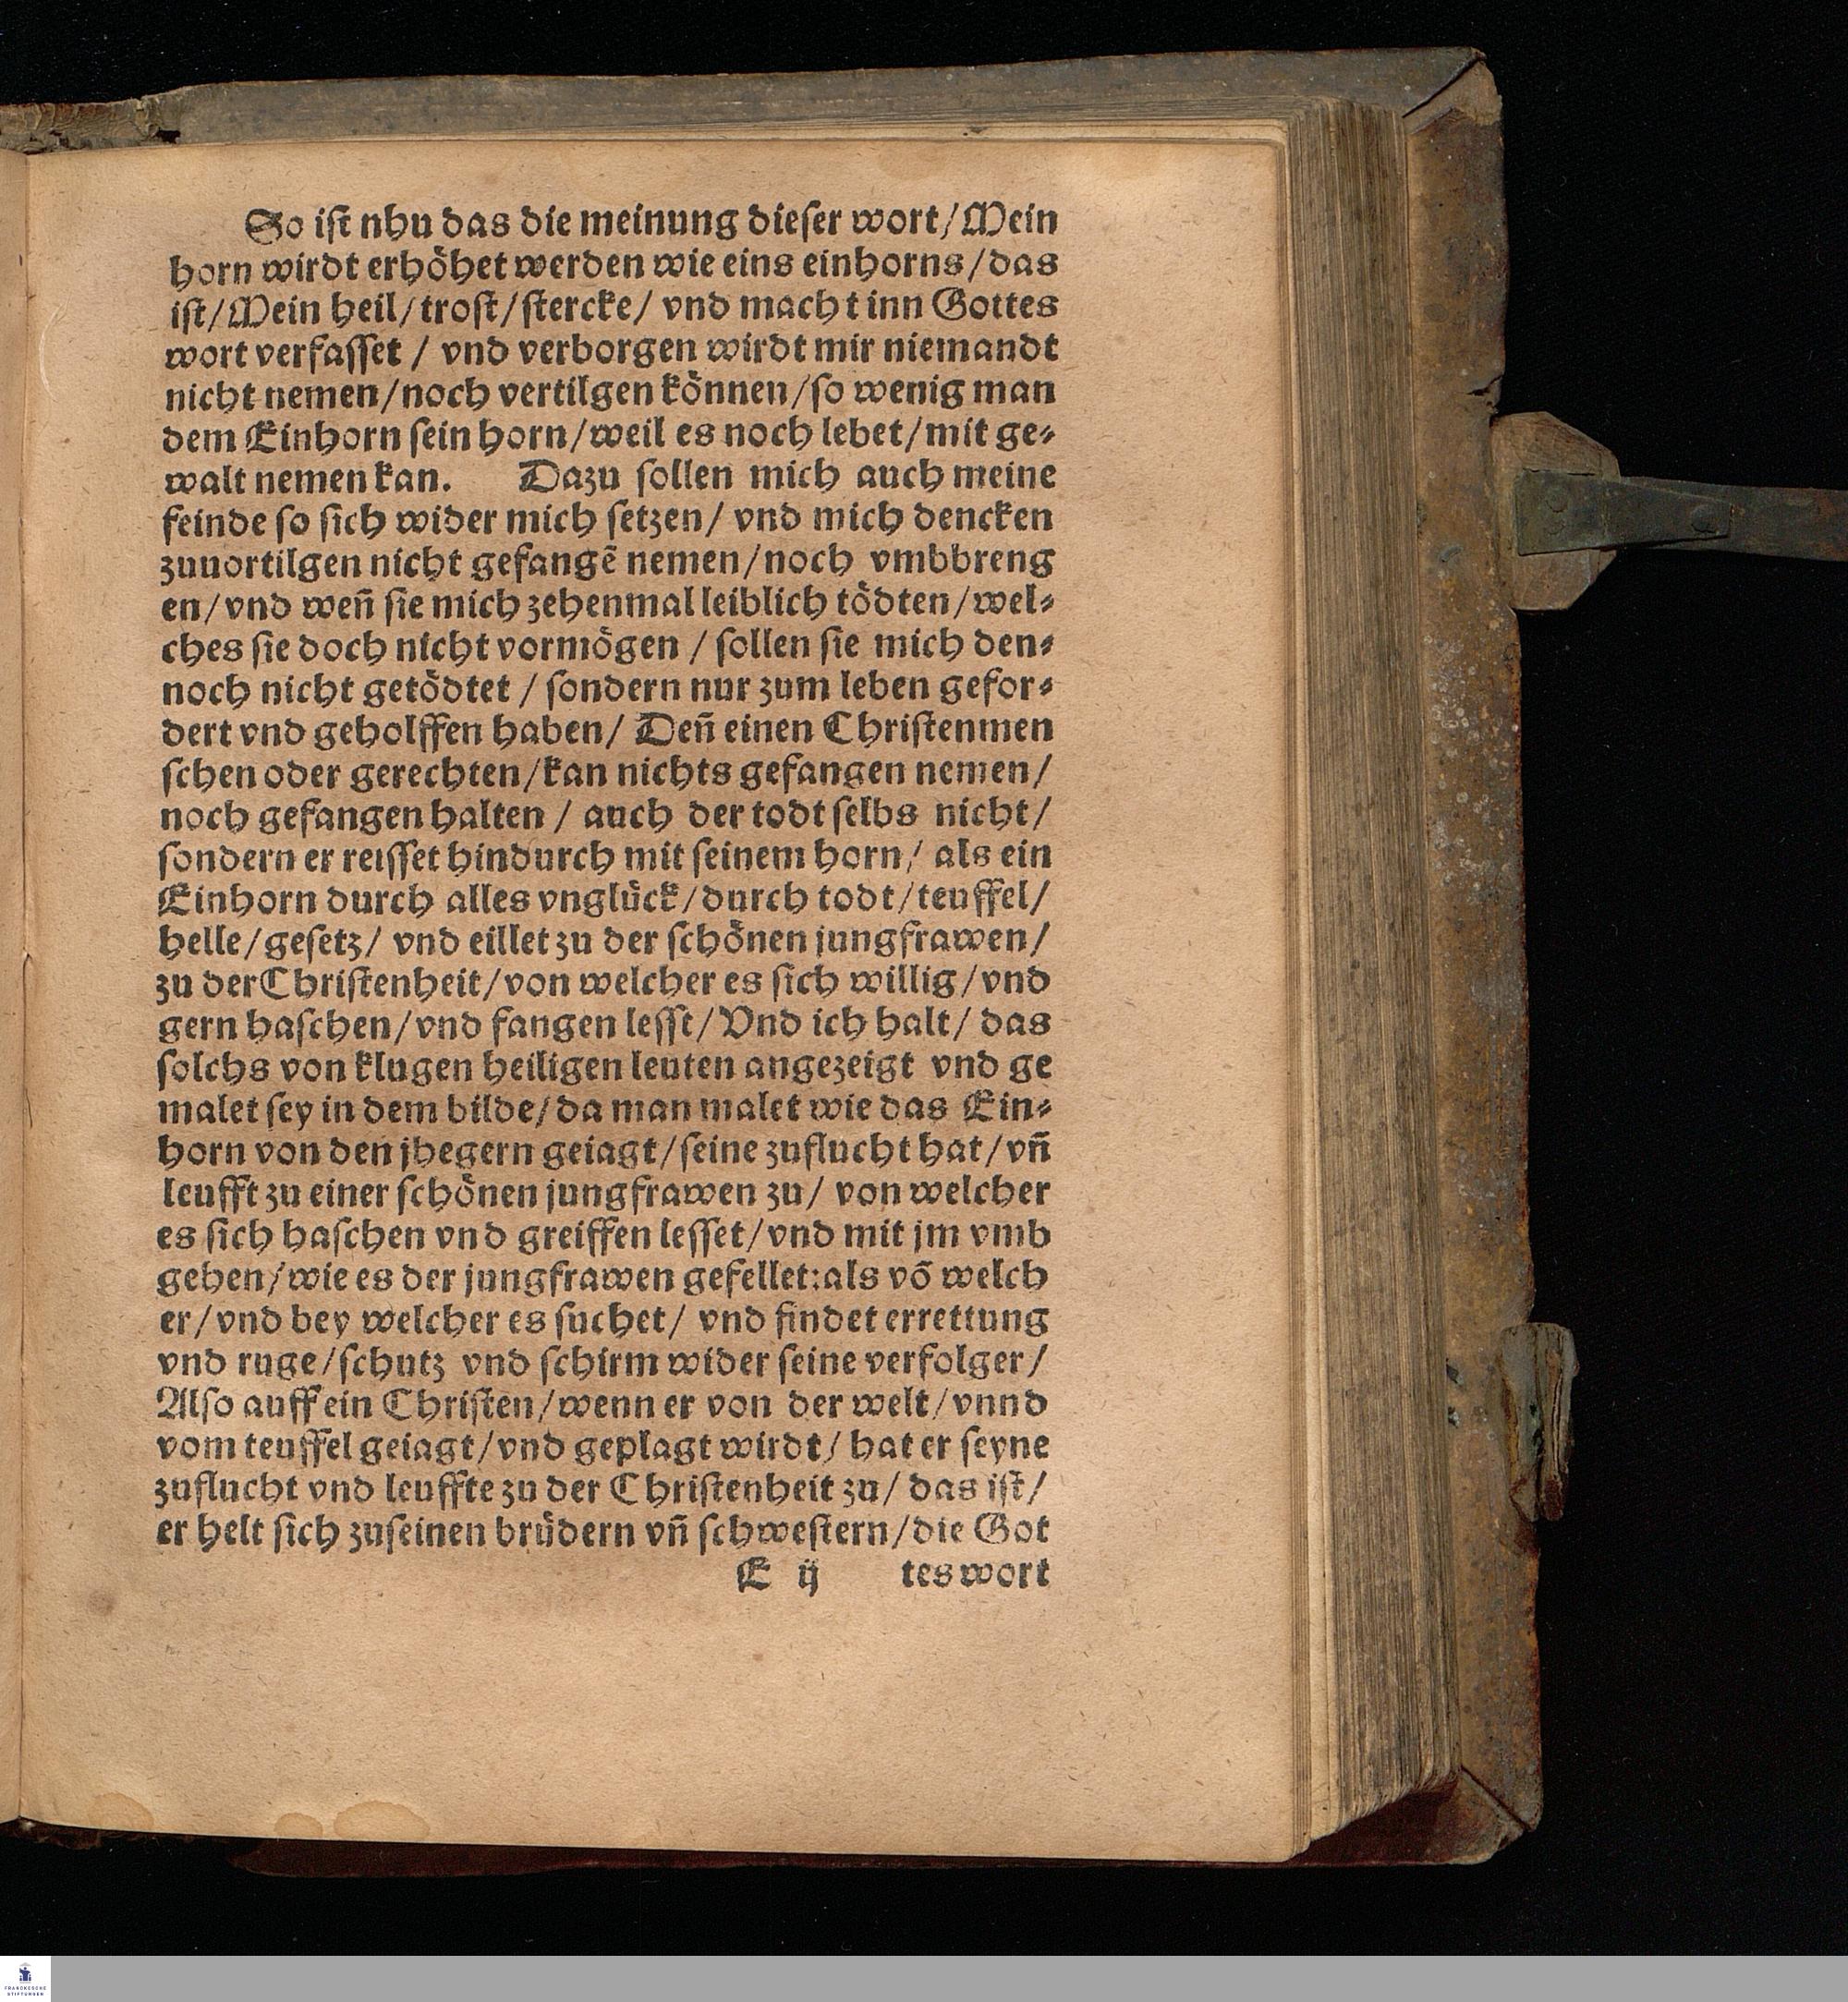 So iſt nhu das die meinung dieſer wort/Mein
horn wirdt erhöhet werden wie eins einhorns/das
iſt/Mein heil/troſt/ſtercke/ vnd macht inn Gottes
wort verfaſſet / vnd verborgen wirdt mir niemandt
nicht nemen/noch vertilgen können/ſo wenig man
dem Einhorn ſein horn/weil es noch lebet/mit ge⸗
walt nemen kan. Dazu ſollen mich auch meine
feinde ſo ſich wider mich ſetzen/ vnd mich dencken
zuuortilgen nicht gefangẽ nemen/noch vmbbreng
en/vnd weñ ſie mich zehenmal leiblich tödten/wel⸗
ches ſie doch nicht vormögen / ſollen ſie mich den⸗
noch nicht getödtet / ſondern nur zum leben gefor⸗
dert vnd geholffen haben/ Deñ einen Chriſtenmen
ſchen oder gerechten/kan nichts gefangen nemen/
noch gefangen halten / auch der todt ſelbs nicht/
ſondern er reiſſet hindurch mit ſeinem horn/ als ein
Einhorn durch alles vnglück/durch todt/teuffel/
helle/geſetz/ vnd eillet zu der ſchönen jungfrawen/
zu der Chriſtenheit/von welcher es ſich willig/vnd
gern haſchen/vnd fangen leſſt/Vnd ich halt/ das
ſolchs von klugen heiligen leuten angezeigt vnd ge
malet ſey in dem bilde/da man malet wie das Ein⸗
horn von den jhegern geiagt/ſeine zuflucht hat/vñ
leufft zu einer ſchönen jungfrawen zu/ von welcher
es ſich haſchen vnd greiffen leſſet/vnd mit jm vmb
gehen/wie es der jungfrawen gefellet:als võ welch
er/vnd bey welcher es ſuchet/ vnd findet errettung
vnd ruge/ſchutz vnd ſchirm wider ſeine verfolger/
Alſo auff ein Chriſten/wenn er von der welt/vnnd
vom teuffel geiagt/vnd geplagt wirdt/ hat er ſeyne
zuflucht vnd leuffte zu der Chriſtenheit zu/ das iſt/
er helt ſich zuſeinen brüdern vñ ſchweſtern/die Got
E ij tes wort
FRANCKESCHE
STIFTUNGEN